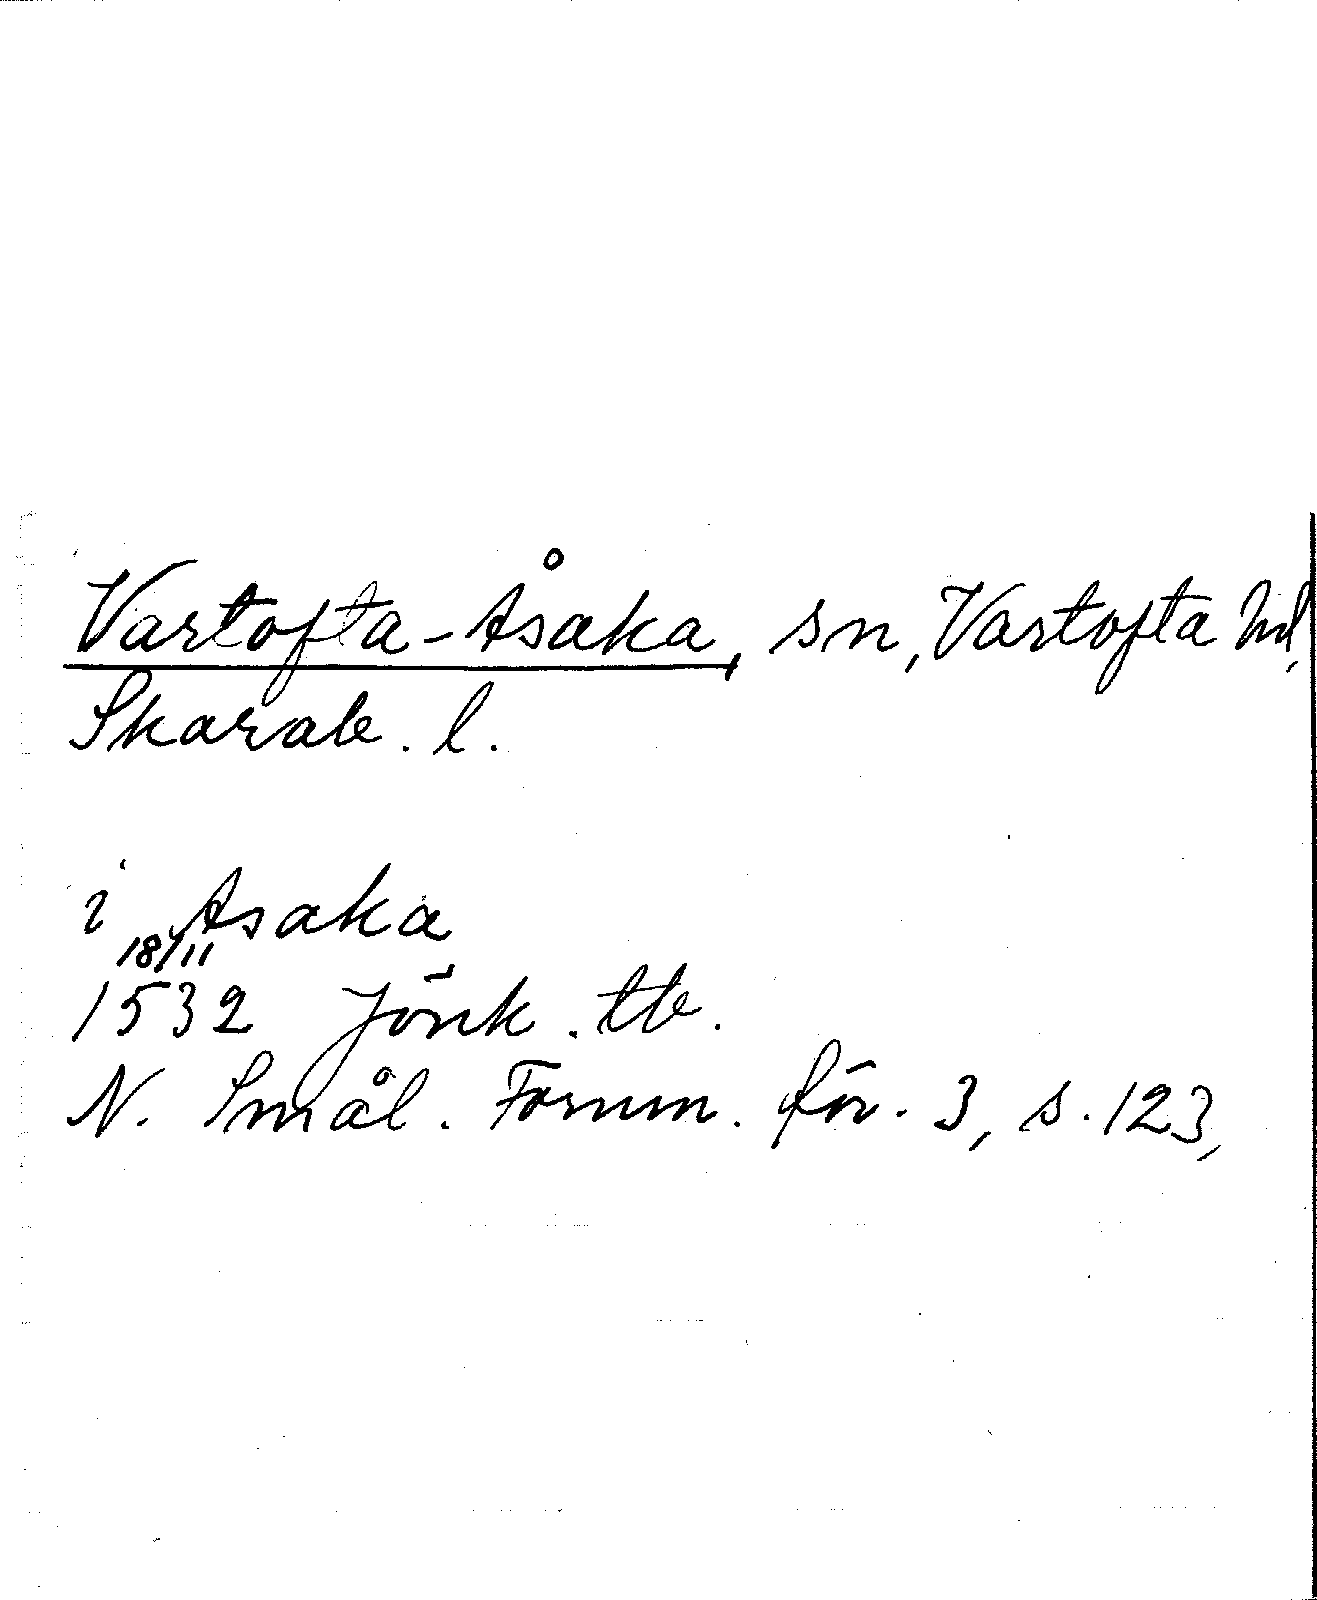 Vartofta-Åsaka, sn, Vartofta hd,
Skarab. l.
i Asaka
18/11
1532 Jönk. tb.
N. Smål. Fornm. för. 3, s. 123,